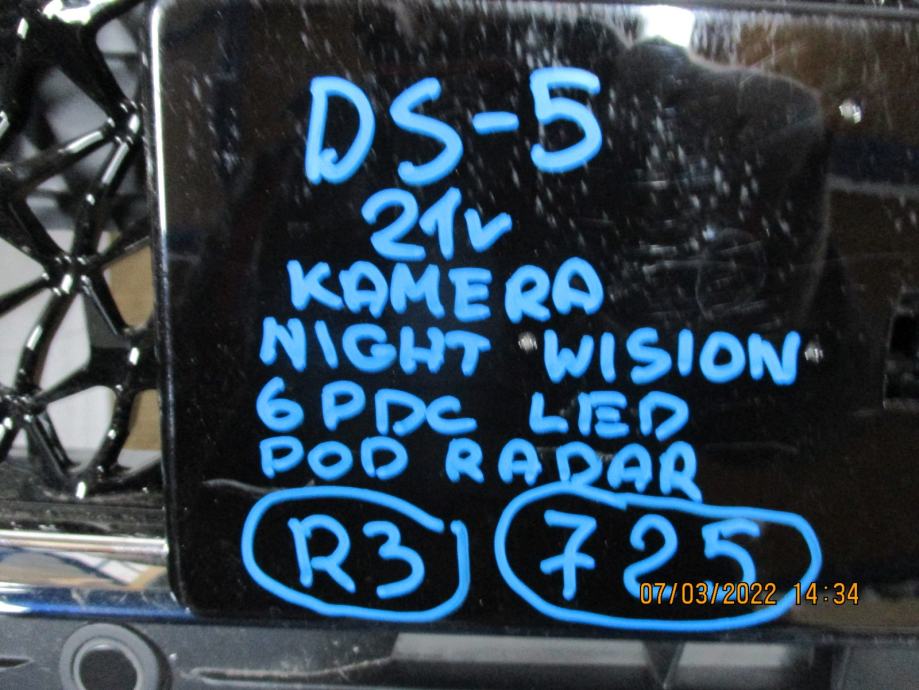 DS-5
21v
KAMERA
NIGHT WISION
6 PDC LED
POD RADAR
R3 725
07/03/2022 14:34